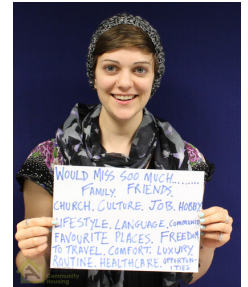 WOULD MISS SOO MUCH.........
FAMILY. FRIENDS.
CHURCH. CULTURE. JOB. HOBBY.
LIFESTYLE. LANGUAGE. COMMUNITY
FAVOURITE PLACES. FREEDOM
TO TRAVEL. COMFORT. LUXURY.
ROUTINE. HEALTHCARE. OPPORTUN-
ITIES
Community
Housing